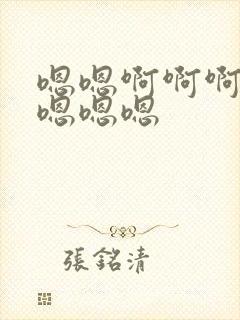 嗯嗯啊啊啊
嗯嗯嗯
張銘清